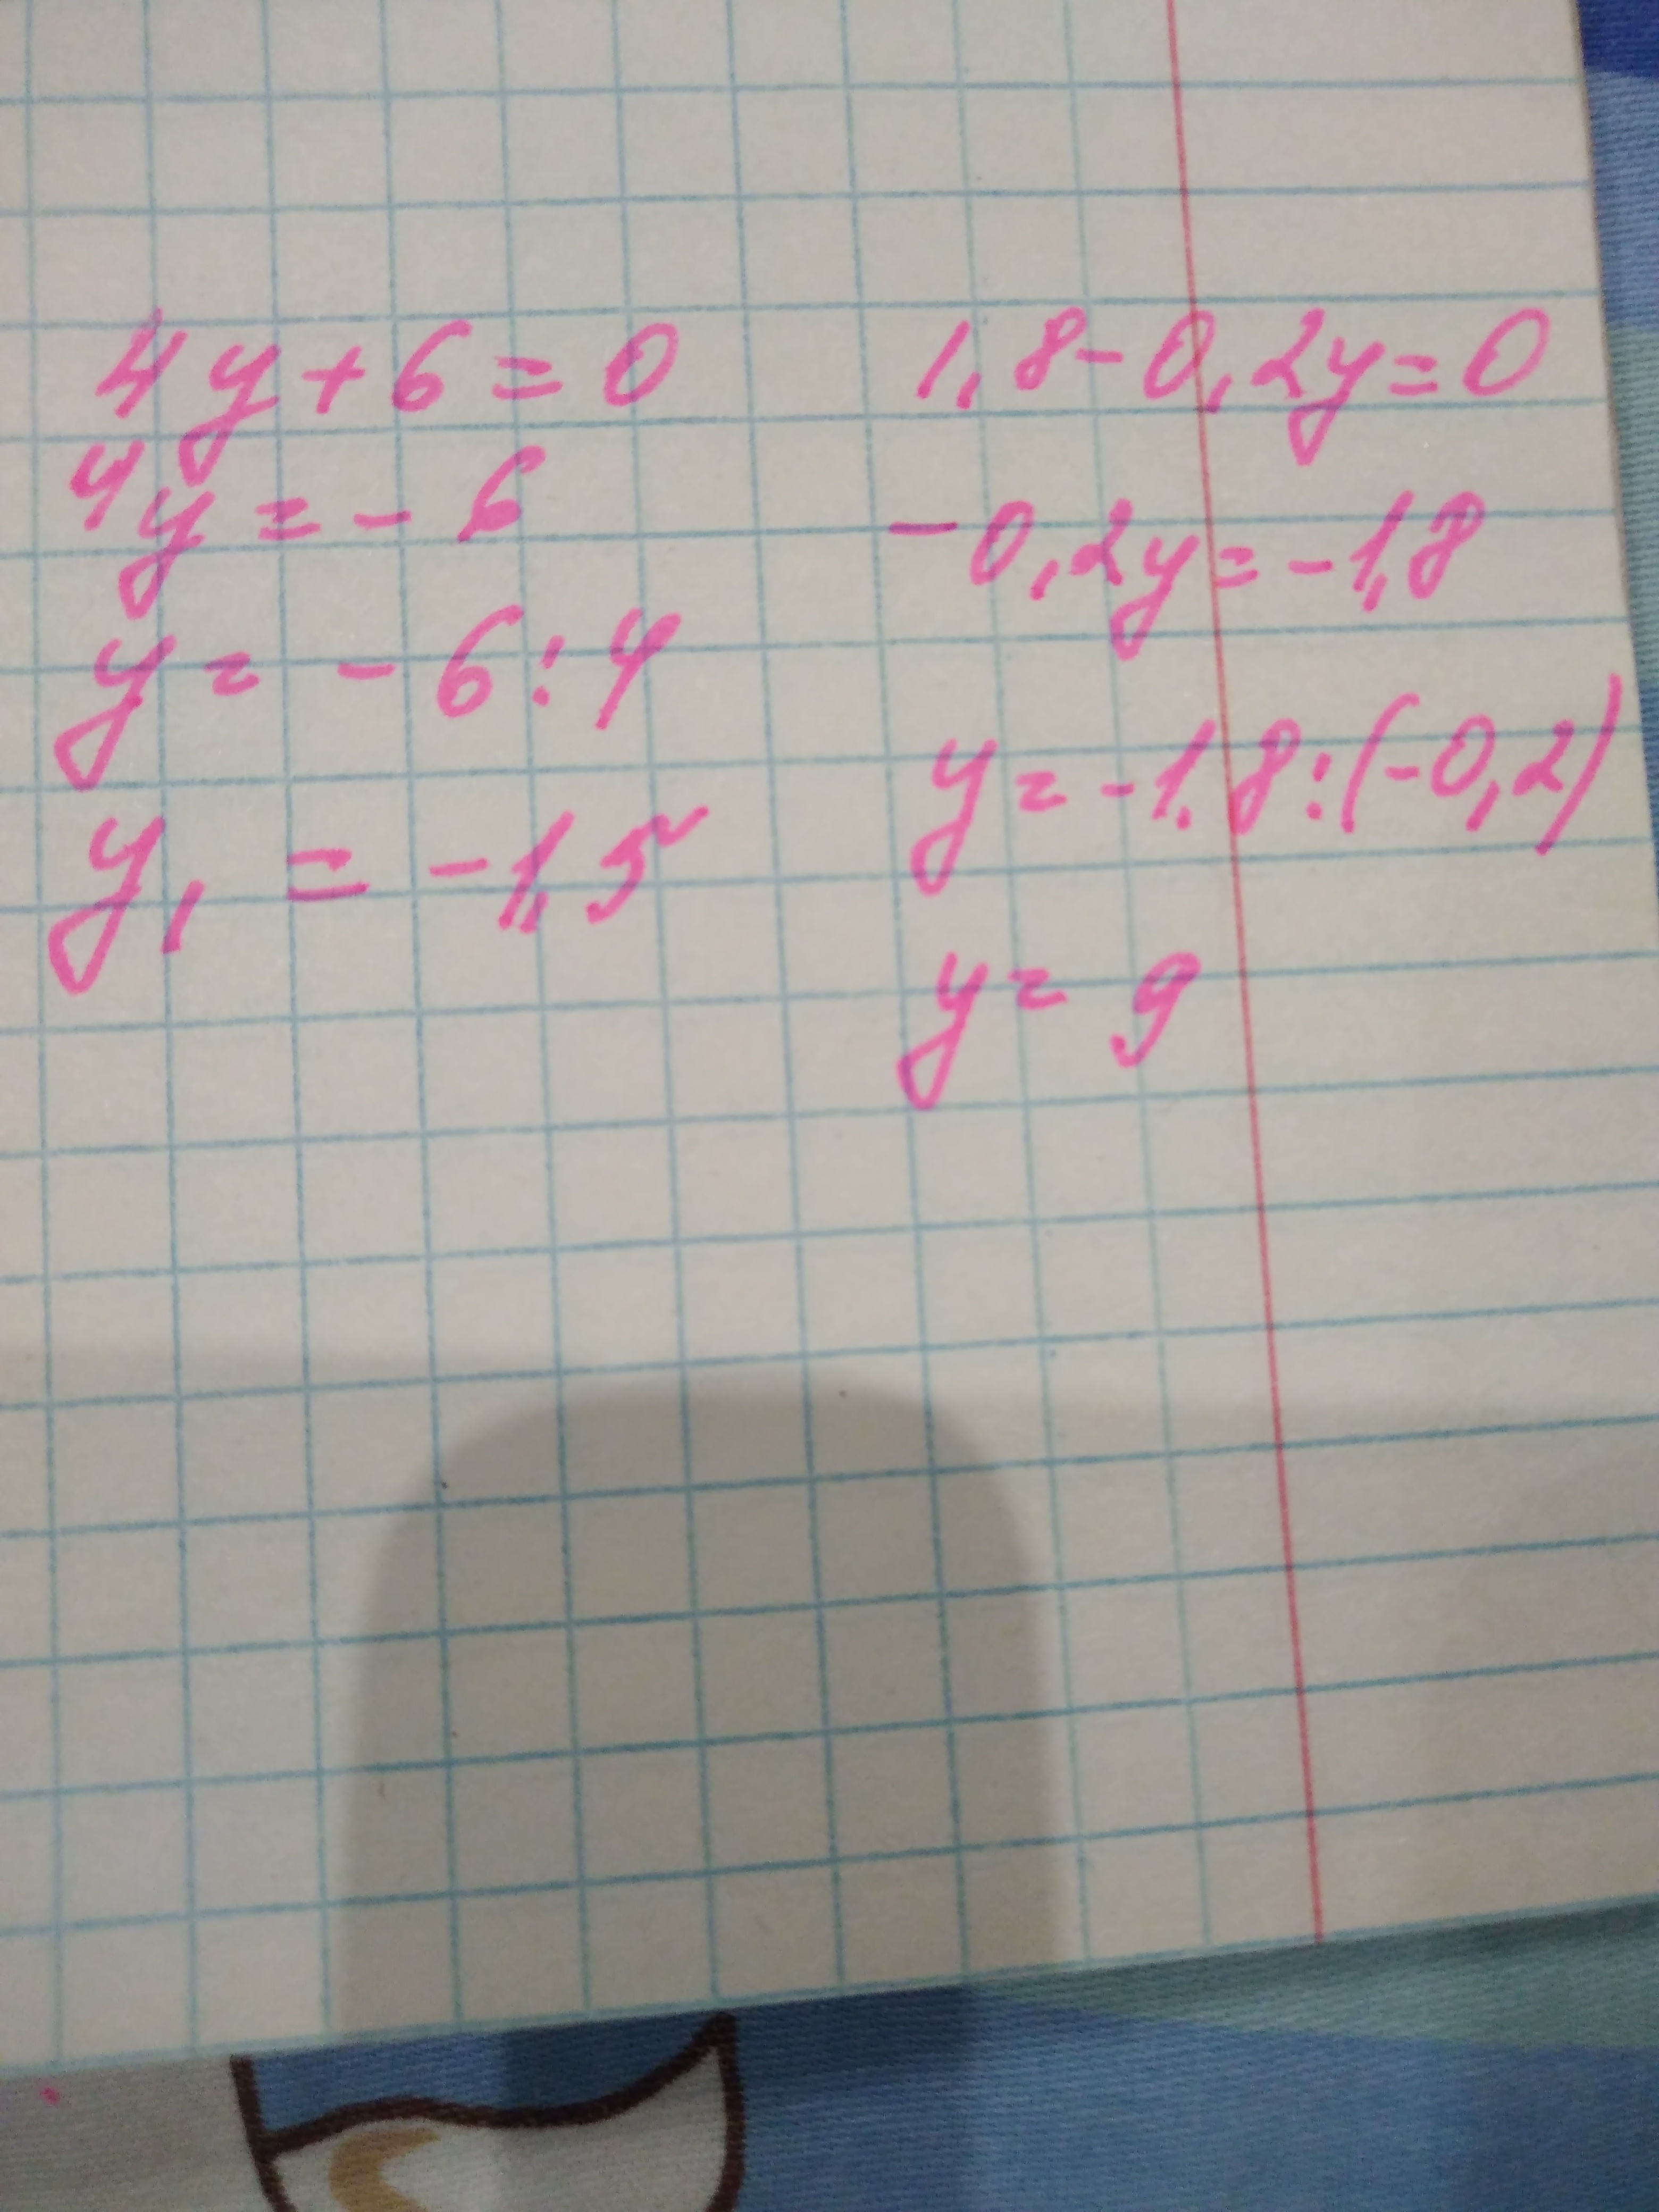 4y+6=0
4y=-6
y=-6:4
y₁=-1,5
1,8-0,2y=0
-0,2y=-1,8
y=-1.8:(-0,2)
y=9